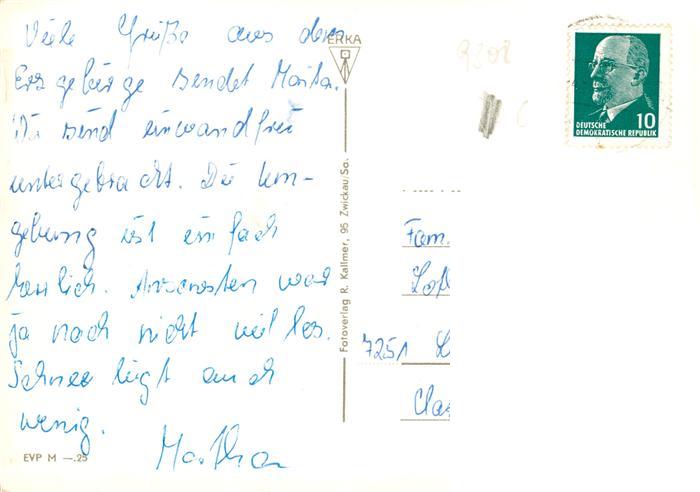 Viele Grüße aus dem
Erzgebirge sendet Marta.
Wir sind einwandfrei
untergebracht. Die Um-
gebung ist einfach
herrlich. Ansonsten war
ja noch nicht viel los.
Schnee liegt auch
wenig.
Martha
EVP M —.25
ERKA
Fotoverlag R. Kallmer, 95 Zwickau/Sa.
9208
DEUTSCHE 10
DEMOKRATISCHE REPUBLIK
Fam.
7251